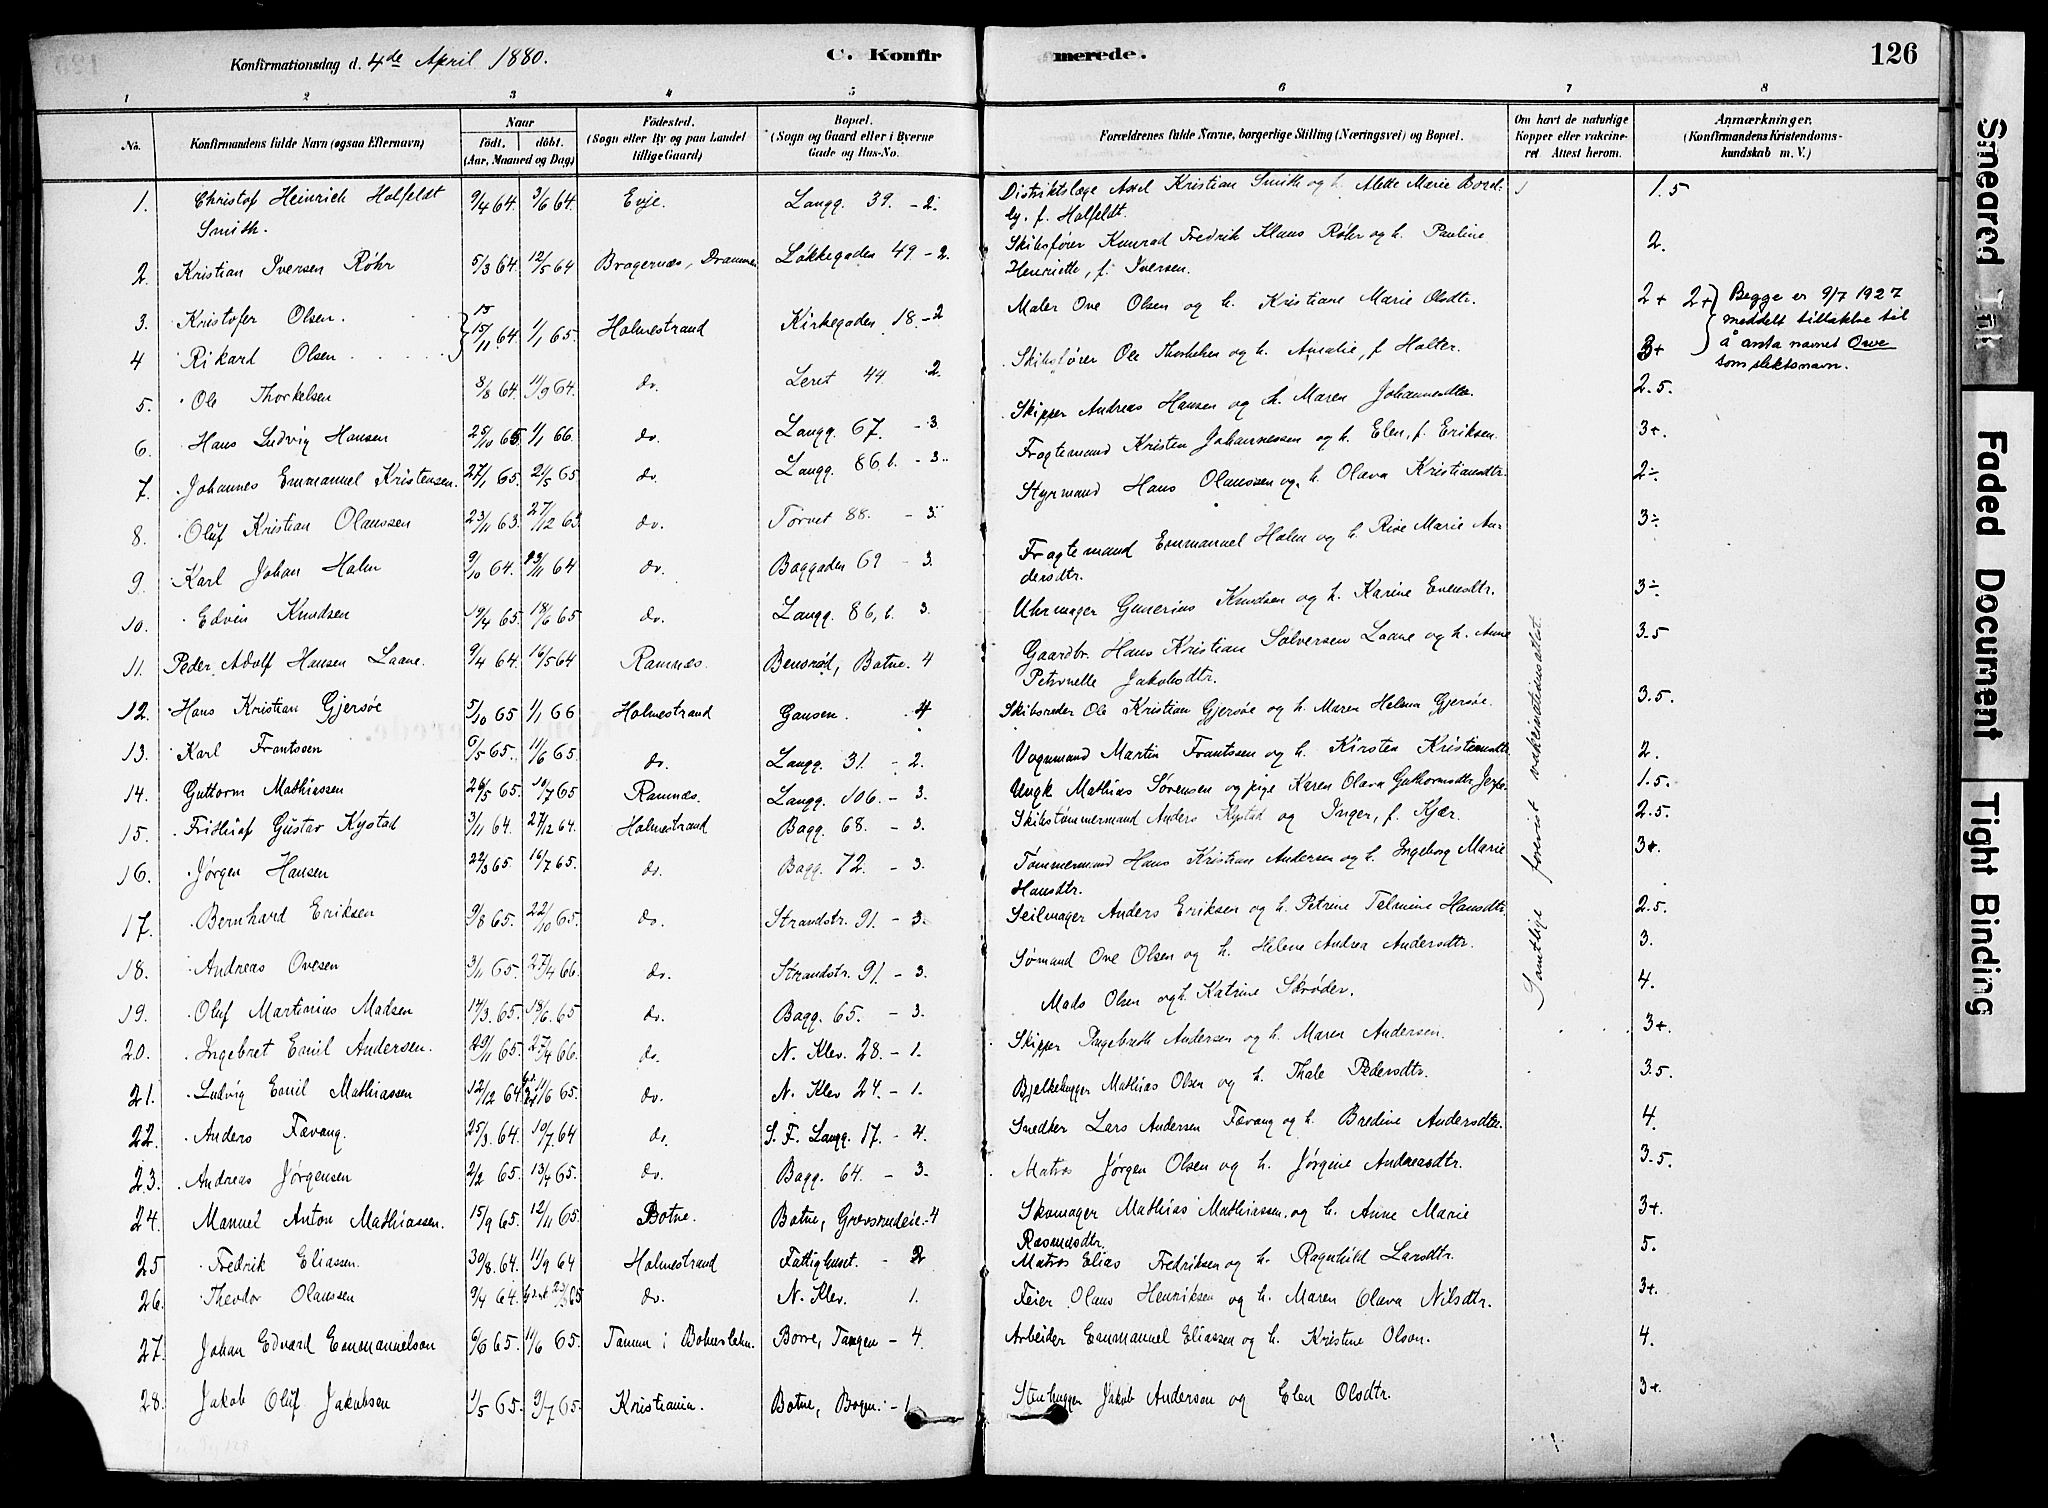 Konfirmationsdag d. 4de April 1880. C. Konfir merede. 126
1 2 3 4 5 6 7 8
No. Konfirmandens fulde Navn (ogsaa Efternavn) Naar födt. döbt. (Aar, Maaned og Dag) Födested. (Sogn eller By og paa Landet tillige Gaard) Bopæl. (Sogn og Gaard eller i Byerne Gade og Hus-No. Forældrenes fulde Navne, borgerlige Stilling (Næringsvei) og Bopæl. Om havt de naturlige Kopper eller vakcineret Attest herom. Anmærkninger. (Konfirmandens Kristendomskundskab m. V.)
1. Christof Heinrich Holfeldt 9/4 64. 3/6 64. Evje. Langg. 39. - 2. Distriktslæge Axel Kristian Smith og h. Alette Marie 1.5
Smith. f. Holfeldt.
2. Kristian Iversen Røhr 5/3 64. 12/5 64 Bragernæs, Drammen Løkkegaden 49 - 2. Skibsfører Konrad Fredrik Klaus Røhr og h. Pauline 2.
Henriette, f. Iversen.
3. Kristofer Olsen. 15/11 64. 1/1 65. Holmestrand Kirkegaden 18. - 2 Maler Ove Olsen og h. Kristiane Marie Olsdtr. 2+ 2+ } Begge er 9/7 1927
meddelt tillatelse til
4 Rikard Olsen å anta navnet Owe
som slektsnavn.
5. Ole Thorkelsen 3/8 64. 11/9 64. do. Leret 44. 2. Skibsfører Ole Thorkelsen og h. Amalie, f. Holter. 3+
6. Hans Ludvig Hansen 25/10 65. 1/1 66. do. Langg. 67. - 3 Skipper Andreas Hansen og h. Maren Johannesdtr. 2.5.
7. Johannes Emmanuel Kristensen. 27/1 65. 21/5 65 do. Langg. 86, b. - 3. Fragtemand Kristen Johannessen og h. Elen, f. Eriksen. 3+.
8. Oluf Kristian Olaussen 23/11 63. 27/12 63. do. Torvet 88. - 3. Styrmand Hans Olaussen og h. Olava Kristiansdtr. 2÷
9. Karl Johan Holm 9/10 64. 23/11 64 do. Baggaden 69 - 3. Fragtemand Emmanuel Holm og h. Rise Marie An- 3÷
dersdtr.
10. Edvin Knudsen 19/4 65. 18/6 65 do. Langg. 86, b. 3. Uhrmager Gunerius Knudsen og h. Karine Evensdtr. 3÷
11. Peder Adolf Hansen Laane. 9/4 64. 16/5 64 Ramnæs. Bensrød, Botne. 4 Gaardbr. Hans Kristian Solversen Laane og h. Anne 3.5
Petronelle Jakobsdtr.
12. Hans Kristian Gjersøe 5/10 65 1/1 66 Holmestrand Gausen. 4 Skibsreder Ole Kristian Gjersøe og h. Maren Helena Gjersøe. 3.5.
13. Karl Frantssen 6/5 65. 11/6 65. do. Langg. 31. - 2. Vognmand Martin Frantssen og h. Kirsten Kristensdtr. 2.
14. Guttorm Mathiassen 26/5 65. 16/7 65 Ramnæs. Langg. 106. - 3. Ungk. Mathias Sørensen og pige Karen Olava Guthormsdtr. 1.5.
15. Fridthiof Gustav Kystad 3/11 64. 27/12 64. Holmestrand Bagg. 68. - 3. Skibstømmermand Anders Kystad og Inger, f. Kjær. 2.5.
16. Jørgen Hansen 22/3 65. 16/7 65. do. Bagg. 72. - 3. Tømmermand Hans Kristian Andersen og h. Ingeborg Marie 3+.
Hansdtr.
17. Bernhard Eriksen 9/8 65. 22/10 65. do. Strandstr. 91. - 3. Seilmager Anders Eriksen og h. Petrine Telmine Hansdtr. 2.5.
18. Andreas Ovesen 3/11 65. 27/4 66. do. Strandstr. 91. - 3. Sømand Ove Olsen og h. Helene Andrea Andersdtr. 3.
19. Oluf Martinius Madsen 17/3. 65. 18/6. 65 do. Bagg. 65. - 3. Mads Olsen og h. Katrine Skrøder. 4.
20. Ingebret Emil Andersen. 29/11 65. 27/4 66. do. N. Klev. 28. - 1. Skipper Ingebreth Andersen og h. Maren Andersen. 3+.
21. Ludvig Emil Mathiassen 12/12 64 11/6 65. do. N. Klev 24. - 1. Bjelkehugger Mathias Olsen og h. Thale Pedersdtr. 3.5.
22. Anders Færang. 25/3. 64. 10/7 64 do. S. F. Langg. 17. - 4. Snedker Lars Andersen Færang og h. Bredine Andersdtr. 4.
23. Andreas Jørgensen 2/2 65. 13/4 65. do. Bagg. 64. - 3. Matros Jørgen Olsen og h. Jørgine Andreasdtr. 3.5.
24. Manuel Anton Mathiassen. 15/9 65. 12/11 65. Botne. Botne, Grevsrudeie. - 4 Skomager Mathias Mathiassen. og h. Anne Marie 3+.
Rasmusdtr.
25 Fredrik Eliassen. 30/8. 64. 11/9 64 Holmestrand Fattighuset. - 2 Matros Elias Fredriksen og h. Ragnhild Larsdtr. 5.
26. Theodor Olaussen 9/4 64. do. N. Klev. 1. Feier Olaus Henriksen og h. Maren Olava Nilsdtr. 3+.
27. Johan Edvard Emmanuelson 6/6 65. 11/6 65. Tanum i Bohuslehn. Borre, Tangen - 4 Arbeider Emmanuel Eliassen og h. Kristine Olson. 4.
28. Jakob Oluf Jakobsen 1/5 65. 9/7 65. Kristiania. Botne, Bogen. - 1 Stenhugger Jakob Anderson og Elen Olsdtr. 3+.
Samtlige forevist vakcinationsattest.
Smeared Ink
Faded Document
Tight Binding